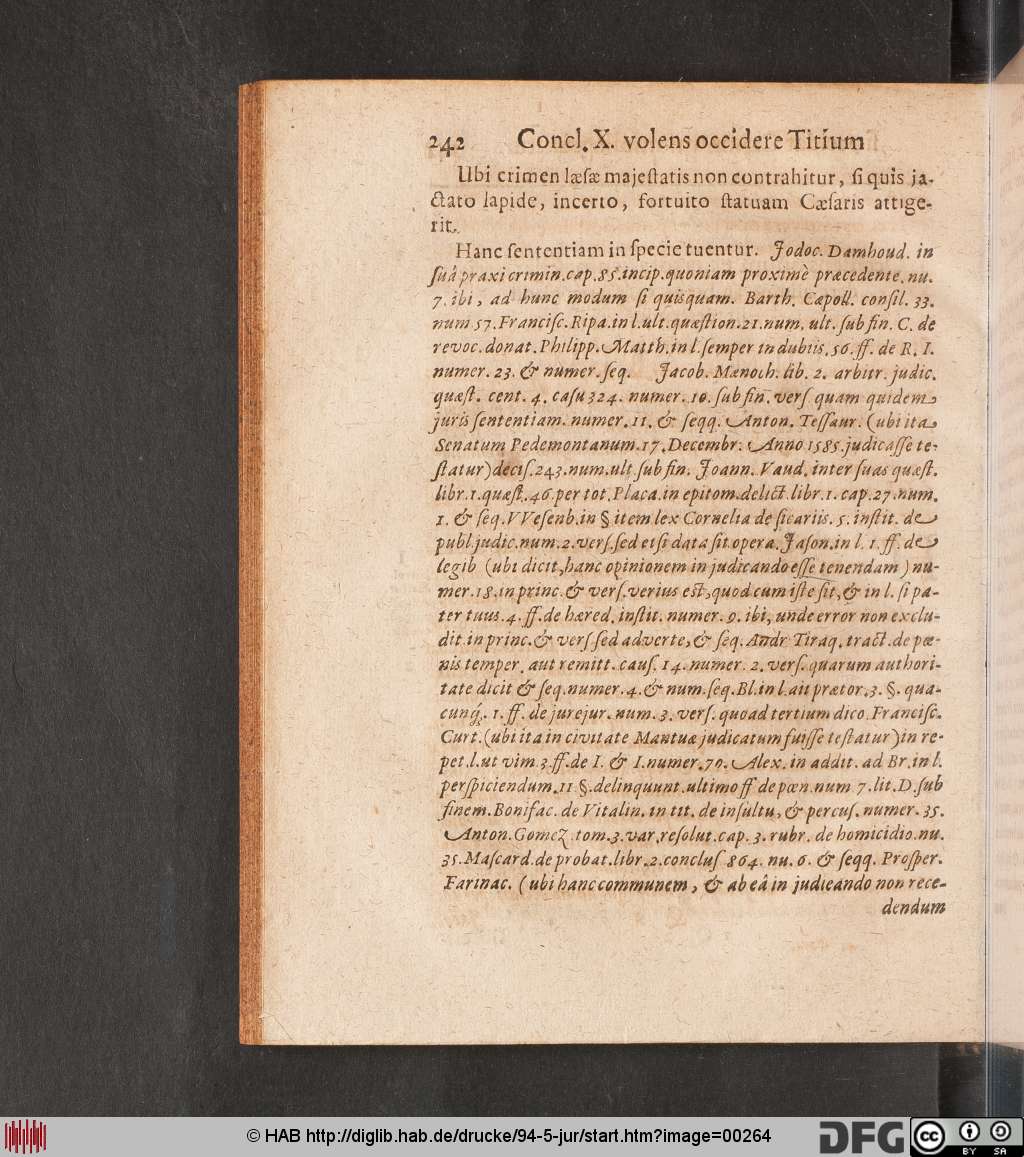 242 Concl. X. volens occidere Titium
Ubi crimen læsæ majestatis non contrahitur, si quis ja-
ctato lapide, incerto, fortuito statuam Cæsaris attige-
rit.
Hanc sententiam in specie tuentur. Jodoc. Damhoud. in
suâ praxi crimin. cap. 85. incip. quoniam proximè præcedente. nu.
7. ibi, ad hunc modum si quisquam. Barth. Cæpoll. consil. 33.
num 57. Francisc. Ripa. in l. ult. quæstion. 21. num. ult. sub fin. C. de
revoc. donat. Philipp. Matth. in l. semper in dubiis. 56. ff. de R. I.
numer. 23. & numer. seq. Jacob. Mænoch. lib. 2. arbitr. judic.
quæst. cent. 4. casu 324. numer. 10. sub fin. vers quam quidem
juris sententiam. numer. 11. & seqq. Anton. Tessaur. (ubi ita
Senatum Pedemontanum. 17. Decembr. Anno 1585. judicasse te-
statur) decis. 243. num. ult. sub fin. Joann. Vaud. inter suas quæst.
libr. 1. quæst. 46. per tot. Placa. in epitom. delict. libr. 1. cap. 27. num.
1. & seq. VVesenb. in § item lex Cornelia de sicariis. 5. instit. de
publ. judic. num. 2. vers. sed etsi data sit opera. Jason. in l. 1. ff. de
legib (ubi dicit, hanc opinionem in judicando esse tenendam) nu-
mer. 18. in princ. & vers. verius est, quod cum iste sit, & in l. si pa-
ter tuus. 4. ff. de hæred. instit. numer. 9. ibi, unde error non exclu-
dit in princ. & vers sed adverte, & seq. Andr Tiraq. tract. de pœ-
nis temper. aut remitt. caus. 14. numer. 2. vers. quarum authori-
tate dicit & seq. numer. 4. & num. seq. Bl. in l. ait prætor. 3. §. qua-
cunq́. 1. ff. de jurejur. num. 3. vers. quoad tertium dico. Francisc.
Curt. (ubi ita in civitate Mantuæ judicatum fuisse testatur) in re-
pet. l. ut vim. 3. ff. de I. & I. numer. 79. Alex. in addit. ad Br. in l.
perspiciendum. 11 §. delinquunt. ultimo ff de pœn. num 7. lit. D. sub
finem. Bonifac. de Vitalin. in tit. de insultu, & percus. numer. 35.
Anton. Gomez tom. 3. var. resolut. cap. 3. rubr. de homicidio. nu.
35. Mascard. de probat. libr. 2. conclus 864. nu. 6. & seqq. Prosper.
Farinac. (ubi hanc communem, & ab eâ in judicando non rece-
dendum
© HAB http://diglib.hab.de/drucke/94-5-jur/start.htm?image=00264
DFG
cc
BY SA